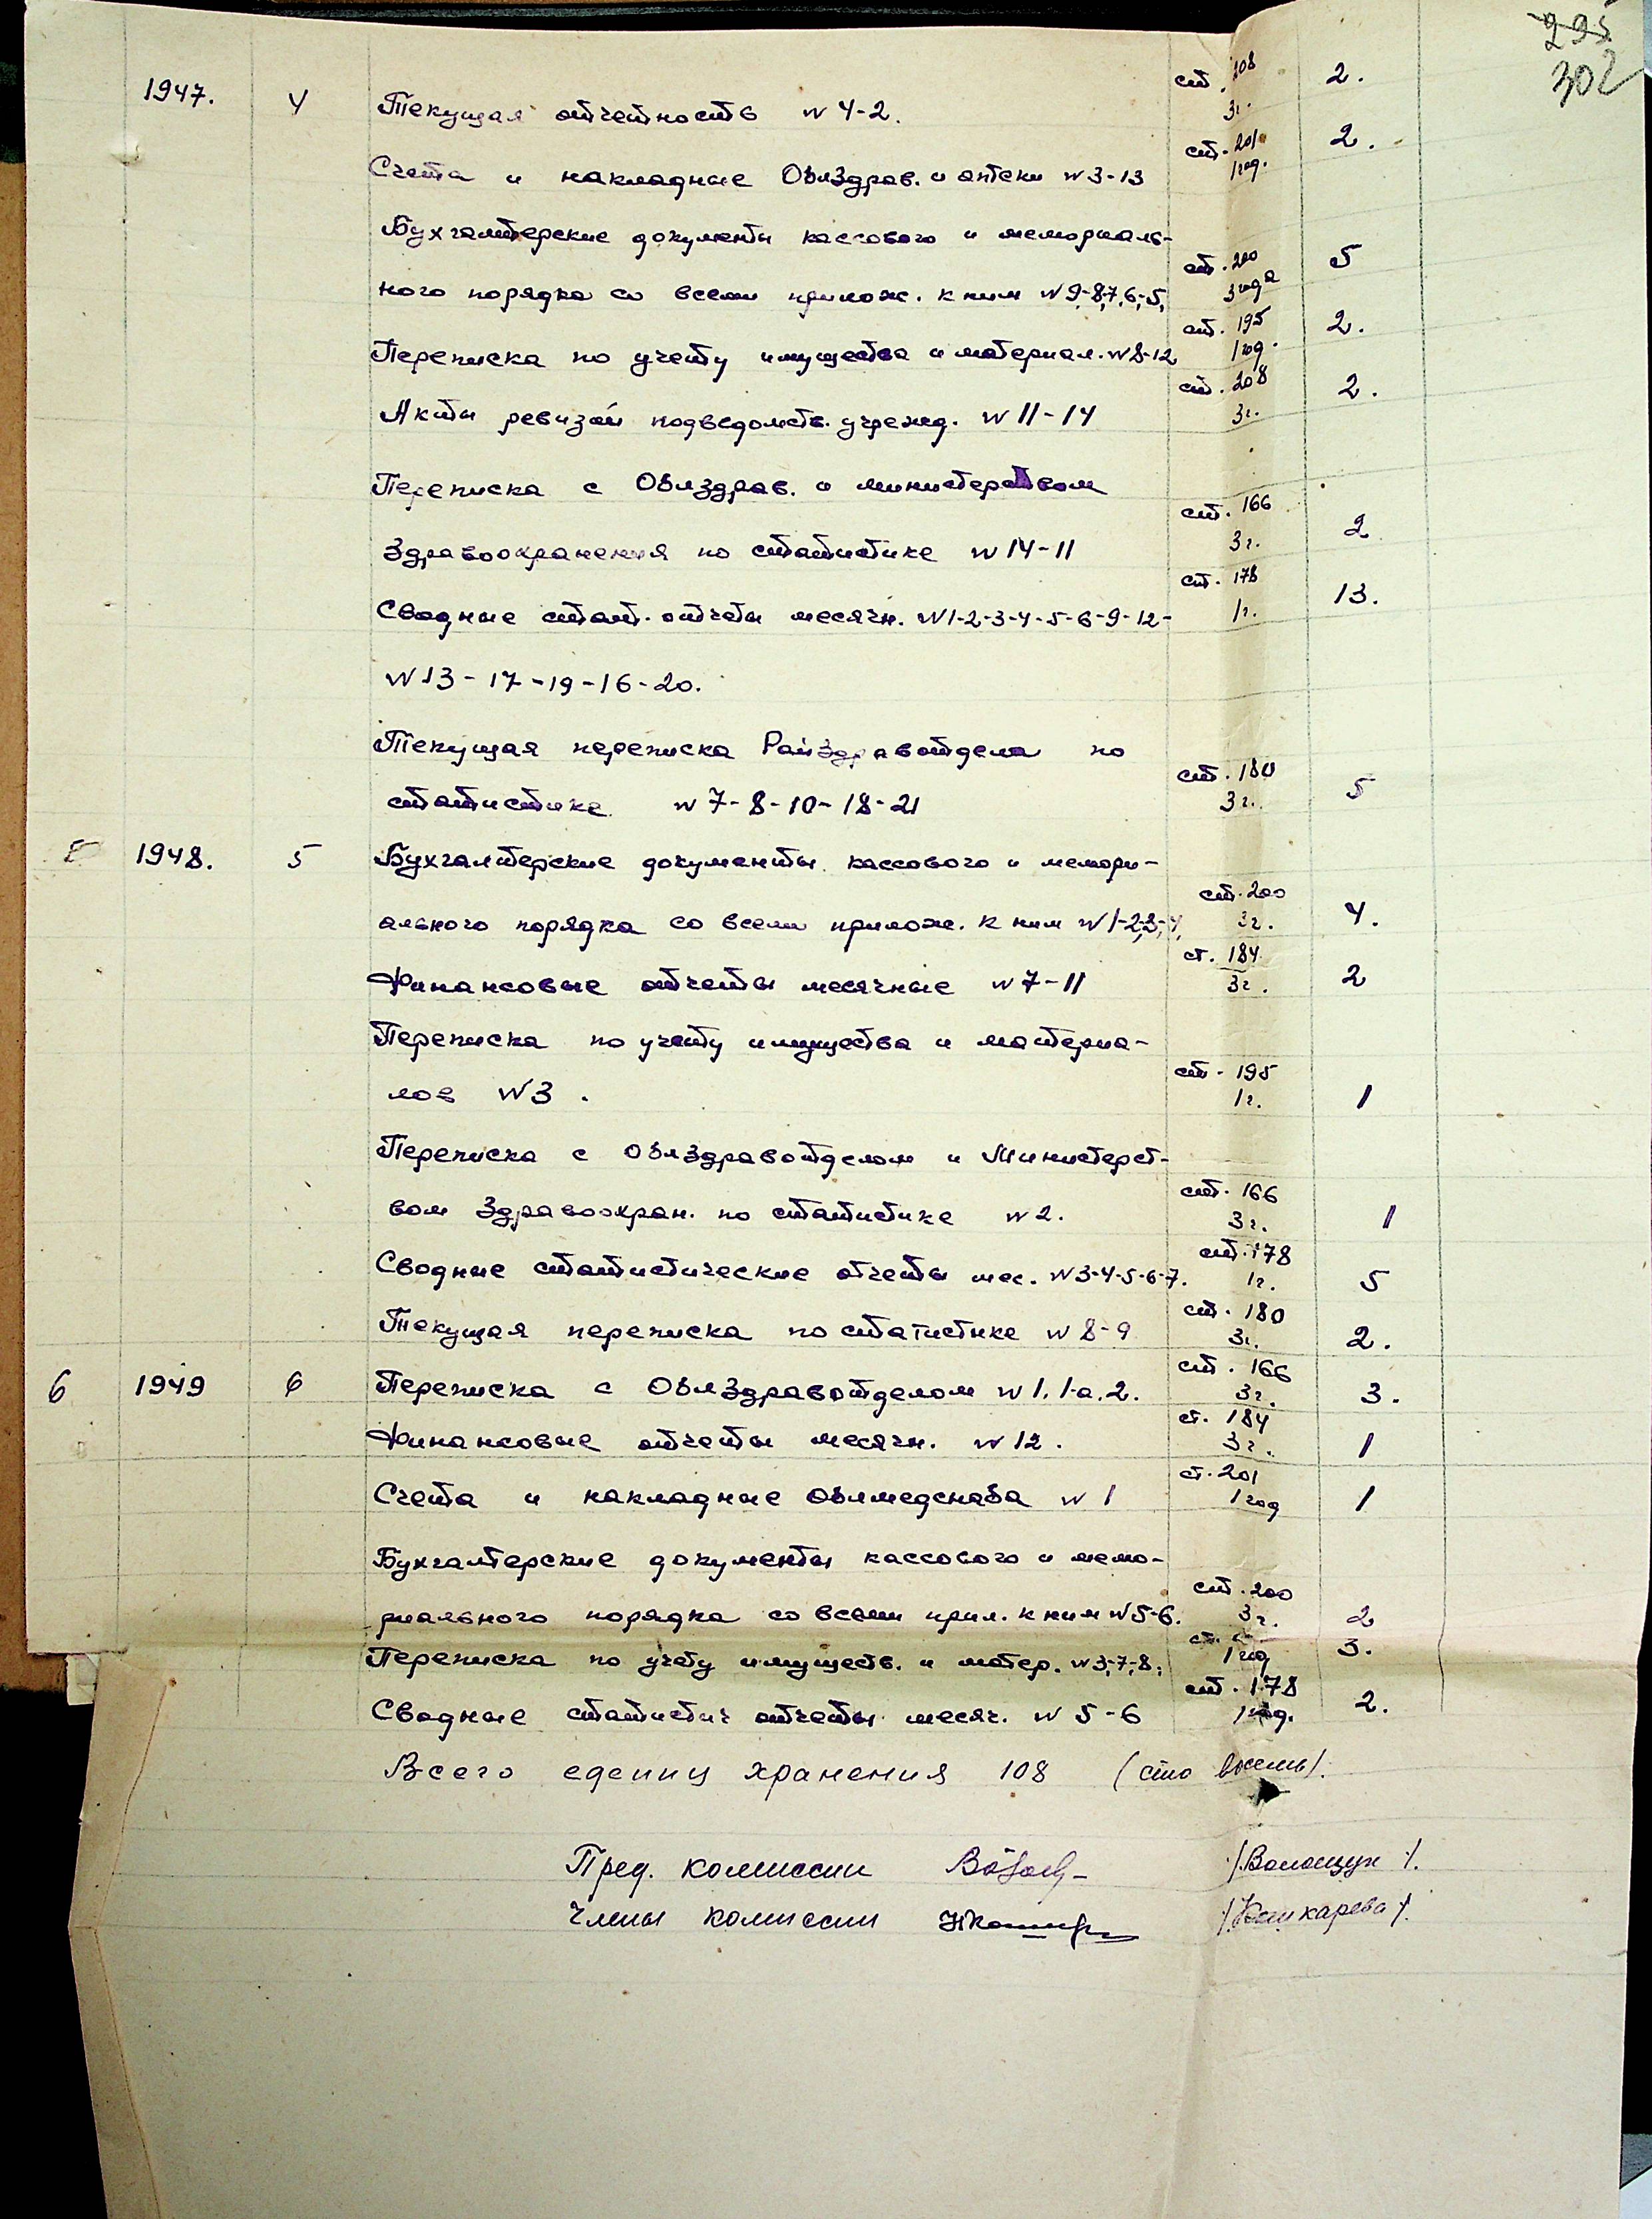 295
302
1947. 4 Текущая отчетность № 4-2. ст. 208 3г. 2.
Счета и накладные Облздрав. и аптеки № 3-13 ст. 201 1год. 2.
Бухгалтерские документы кассового и мемориаль-
ного порядка со всеми прилож. к ним № 9-8,7,6,-5, ст. 200 3года 5
Переписка по учету имущества и материал. № 8-12 ст. 195 1год. 2.
Акты ревизий подведомств. учрежд. № 11-14 ст. 208 3г. 2.
Переписка с Облздрав. и министерством
Здравоохранения по статистике № 14-11 ст. 166 3г. 2
Сводные стат. отчеты месячн. № 1-2-3-4-5-6-9-12- ст. 178 1г. 13.
№ 13-17-19-16-20.
Текущая переписка Райздравотдела по
статистике № 7-8-10-18-21 ст. 180 3г. 5
5 1948. 5 Бухгалтерские документы кассового и мемори-
ального порядка со всеми прилож. к ним № 1-2,3,-4, ст. 200 3г. 4.
Финансовые отчеты месячные № 7-11 ст. 184 3г. 2
Переписка по учету имущества и материа-
лов № 3. ст. 195 1г. 1
Переписка с Облздравотделом и Министерст-
вом Здравоохран. по статистике № 2. ст. 166 3г. 1
Сводные статистические отчеты мес. № 3-4-5-6-7. ст. 178 1г. 5
Текущая переписка по статистике № 8-9 ст. 180 3г. 2.
6 1949 6 Переписка с Облздравотделом № 1. 1-а. 2. ст. 166 3г. 3.
Финансовые отчеты месячн. № 12. ст. 184 3г. 1
Счета и накладные облмедснаба № 1 ст. 201 1год 1
Бухгалтерские документы кассового и мемо-
риального порядка со всеми прил. к ним № 5-6. ст. 200 3г. 2
Переписка по учету имуществ. и матер. № 3,-7,-8; ст. 1год 3.
Сводные статистич отчеты месяч. № 5-6 ст. 178 1год. 2.
Всего едениц хранения 108 (сто восемь).
Пред. комиссии /Волощук/.
Члены комиссии /Кашкарева/.